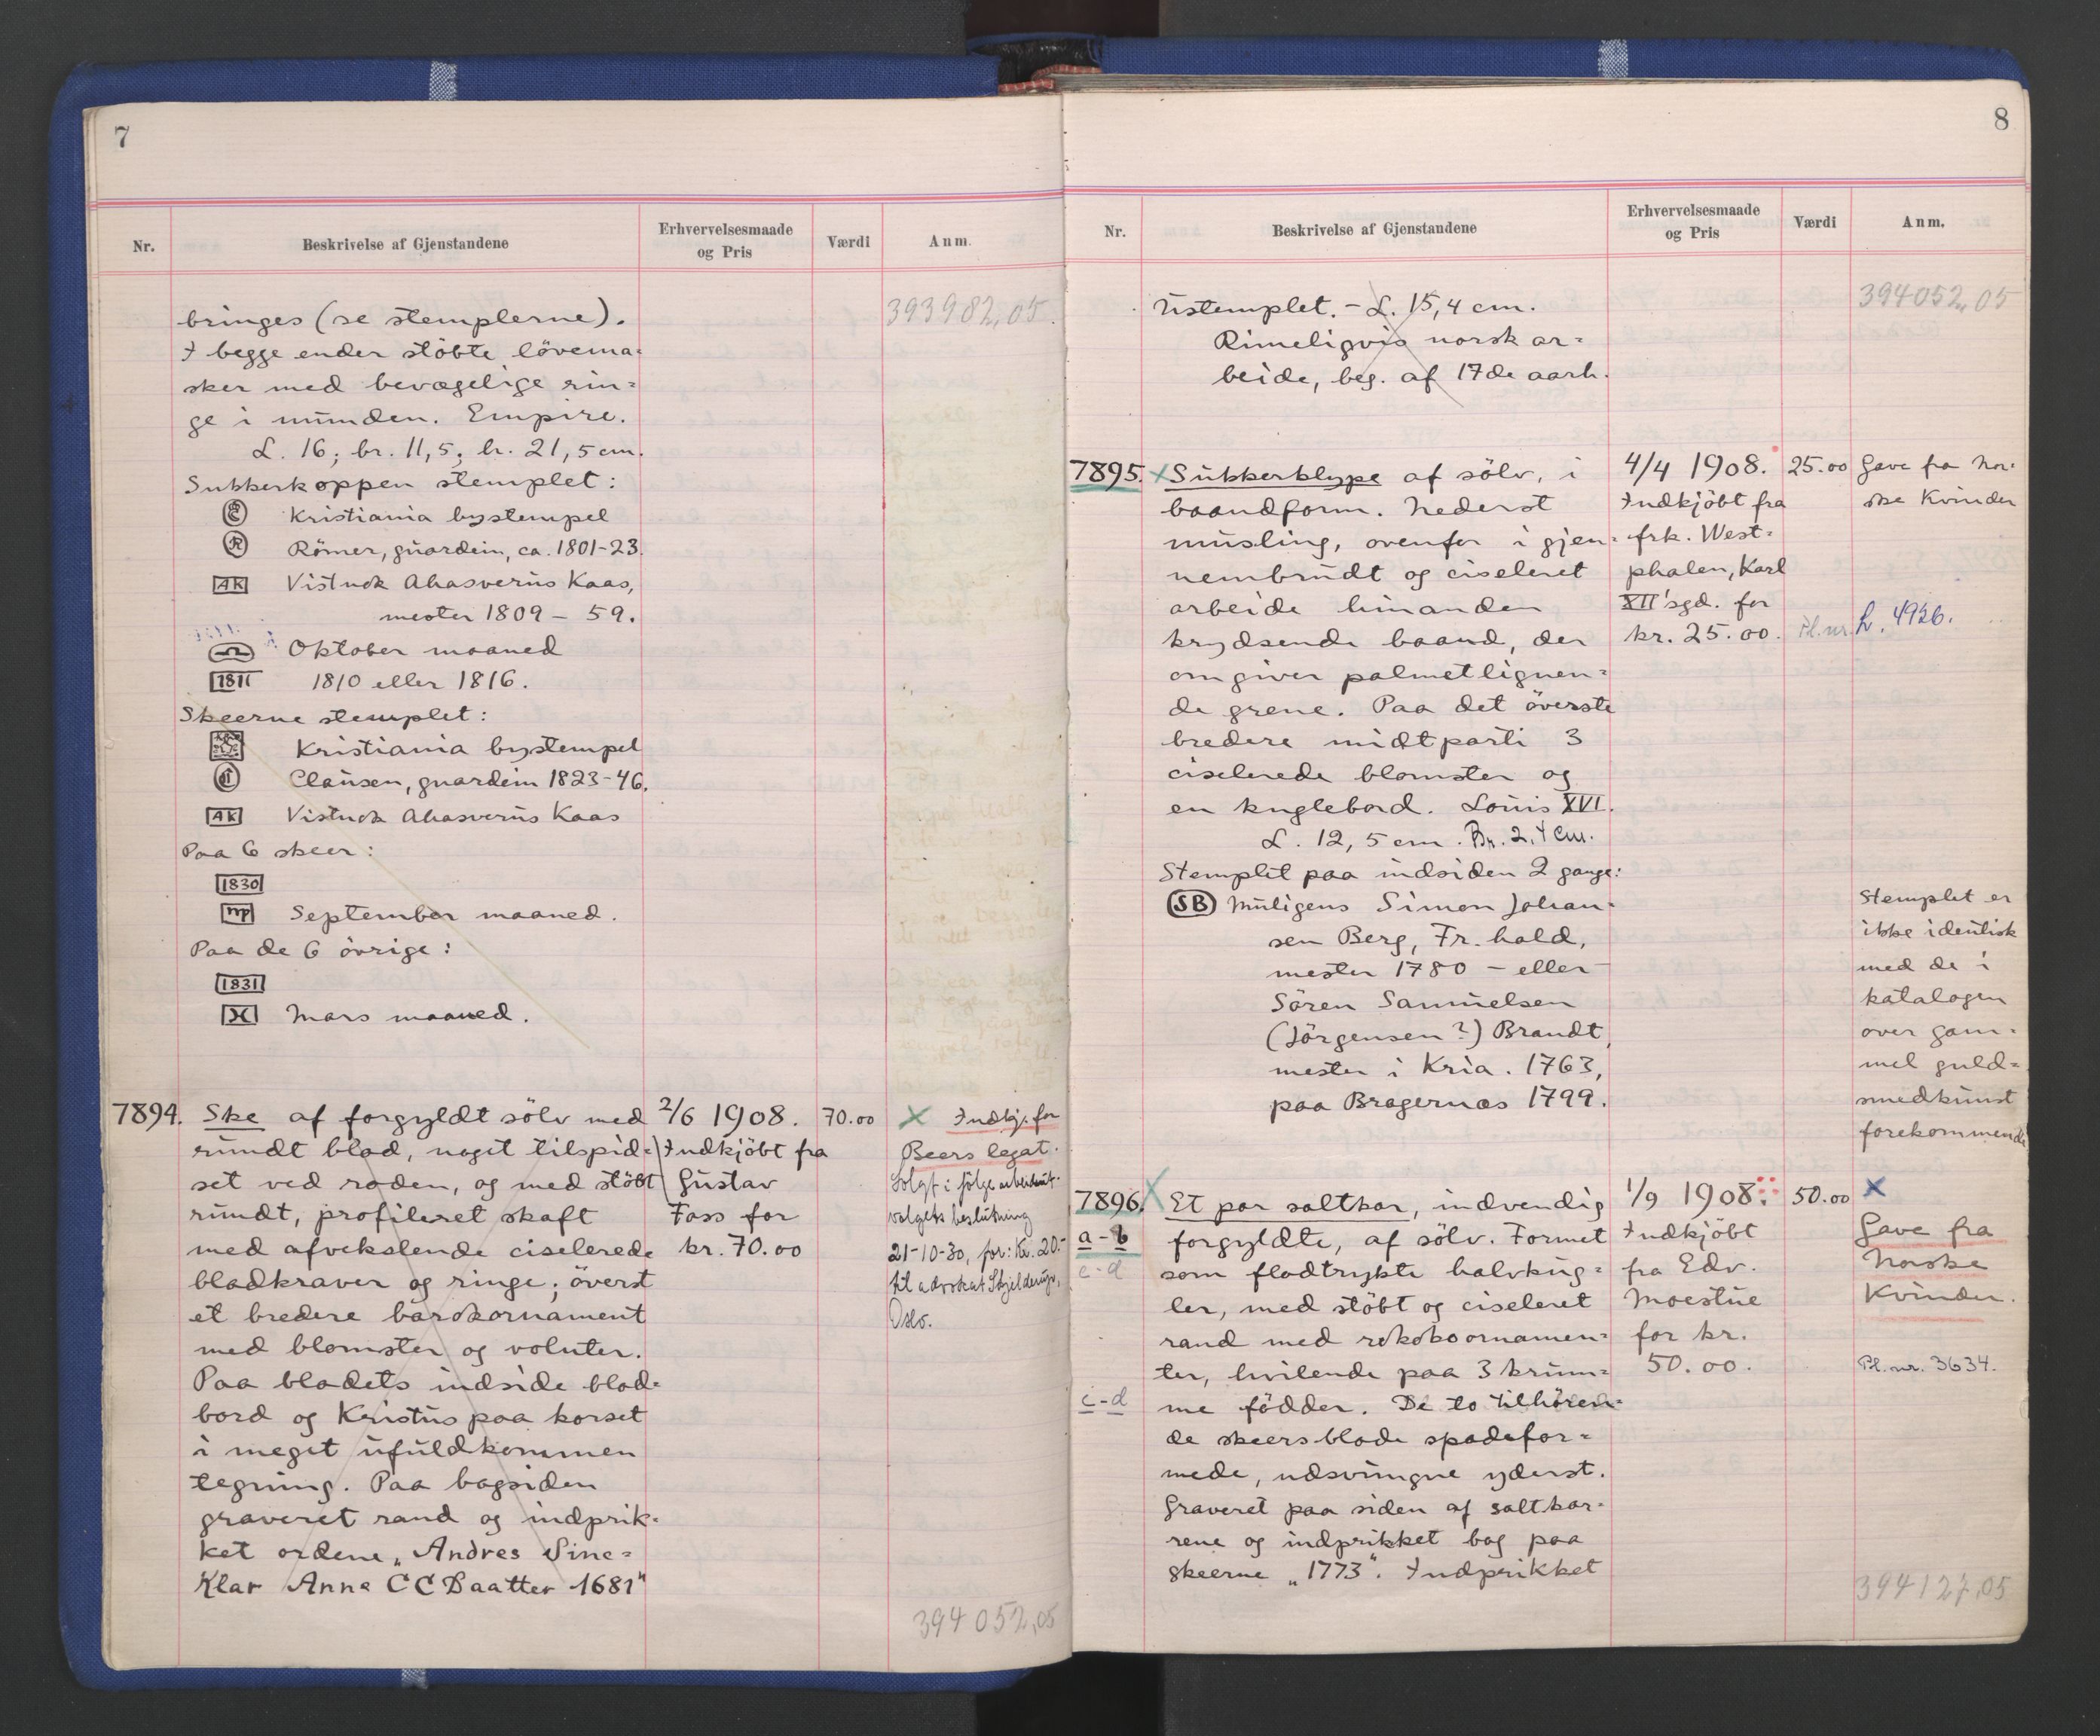 7
Nr.
Beskrivelse af Gjenstandene
Erhvervelsesmaade
og Pris
Værdi
Anm.
393982,05
bringes (se stemplerne).
I begge ender stöbte lövema-
sker med bevægelige rin-
ge i munden. Empire.
L. 16; br. 11,5; h. 21,5 cm.
Sukkerkoppen stemplet:
Kristiania bystempel
R Römer, guardein, ca. 1801-23.
AK Vistuck Ahasverus Kaas,
mester 1809 - 59.
Oktober maaned
181 1810 eller 1816.
Skeerne stemplet:
Kristiania bystempel
C Clausen, guardein 1823-46.
AK Vistuck Ahasverus Kaas
Paa 6 skeer:
1830
mp September maaned.
Paa de 6 övrige:
1831
Mars maaned.
7894.
Ske af forgyldt sölv med
rundt blad, noget tilspid-
set ved roden, og med stöbt
rundt, profileret skaft
med afvekslende ciselerede
bladkraver og ringe; överst
et bredere barokornament
med blomster og voluter.
Paa bladets indside blad-
bord og Kristus paa korset
i meget ufuldkommen
tegning. Paa bagsiden
graveret rand og indprik-
ket ordene „Andres Sine-
Klar Anna CC Daatter 1681"
2/6 1908.
Indkjöbt fra
Gustav
Foss for
kr. 70.00
70.00
x Indkj. for
Beers legat.
Solgt i följe arbeidsut-
valgets beslutning
21-10-30, for: Kr. 20.-
til advokat Skjelderup,
Oslo.
394 052,05
8
Nr.
Beskrivelse af Gjenstandene
Erhvervelsesmaade
og Pris
Værdi
Anm.
394052,05
Ustemplet. - L. 15,4 cm.
Rimeligvis norsk ar-
beide, beg. af 17de aarh.
7895.
x Sukkerklype af sölv, i
baandform. Nederst
musling, ovenfor i gjen-
nembrudt og ciseleret
arbeide hinanden
krydsende baand, der
omgiver palmetlignen-
de grene. Paa det överste
bredere midtparti 3
ciselerede blomster og
en kuglebord. Louis XVI.
L. 12,5 cm. Br. 2,4 cm.
Stemplet paa indsiden 2 gange:
SB Muligens Simen Johan-
sen Berg, Fr. hald,
mester 1780 - eller
Sören Samuelsen
(Jörgensen?) Brandt,
mester i Kria. 1763,
paa Bragernæs 1799.
4/4 1908.
Indkjöbt fra
frk. West-
phalen, Karl
XII'sgd. for
kr. 25.00.
25.00
Gave fra Nor-
ske Kvinder
Pl. nr. L. 4926.
Stemplet er
ikke identisk
med de i
katalogen
over gam-
mel guld-
smedkunst
forekommende
7896.
a-b
c-d
c-d
x Et par saltkar, indvendig
forgyldte, af sölv. Formet
som fladtrykte halvkug-
ler, med stöbt og ciseleret
rand med rokokoornamen-
ter, hvilende paa 3 krum-
me födder. De to tilhören-
de skeersblade spadefor-
mede, udsvungne yderst.
Graveret paa siden af saltkar-
rene og indprikket bag paa
skeerne „1773". Indprikket
1/9 1908.
Indkjöbt
fra Edv.
Moestue
for kr.
50.00.
50.00
x
Gave fra
Norske
Kvinder.
Pl. nr. 3634.
394127,05